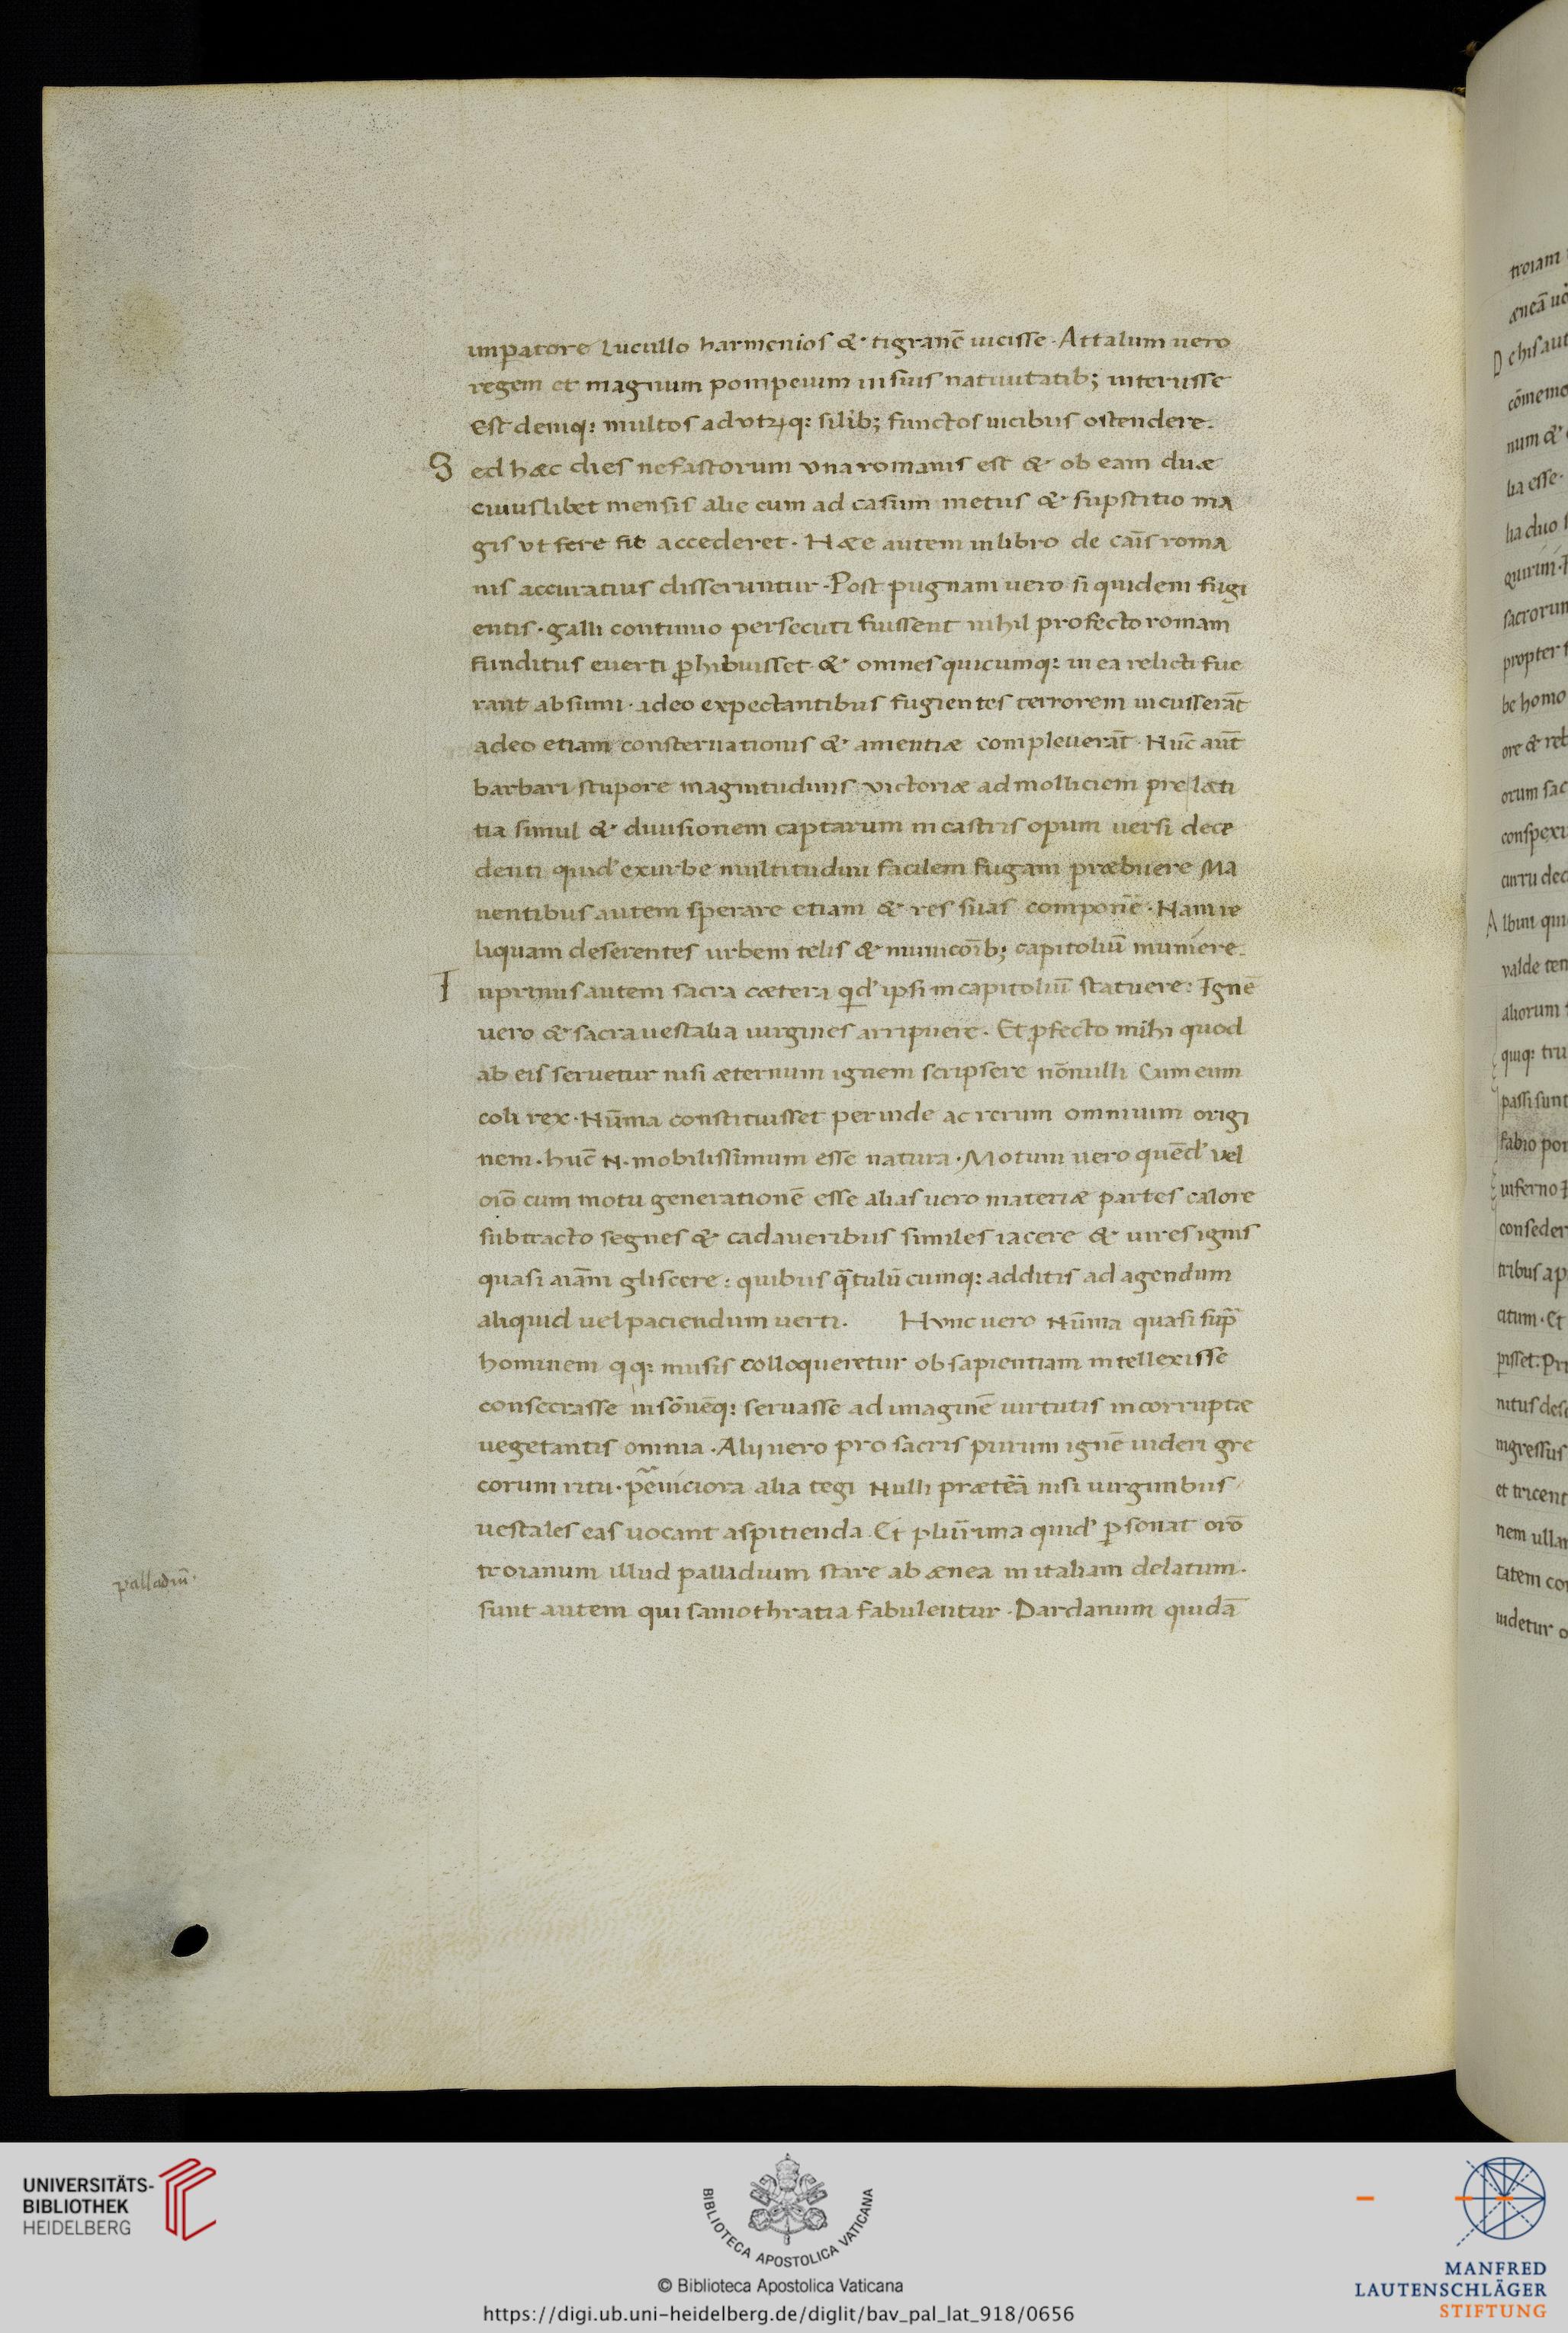 imperatore Lucullo harmenios & tigranē uicisse. Attalum uero
regem et magnum pompeium in suis natiuitatib; interiisse
Est deniq: multos ad utrūq: silib; functos uicibus ostendere.
Sed hæc dies nefastorum una romanis est & ob eam duæ
cuiuslibet mensis alie cum ad casum metus & supstitio ma
gis vt fere fit accederet. Hæc autem in libro de cāis roma
nis accuratius disseruntur. Post pugnam uero si quidem fugi
entis. galli continuo persecuti fuissent nihil profecto romam
funditus euerti phibuisset & omnes quicumq: in ea relicti fue
rant absumi. adeo expectantibus fugientes terrorem incusserāt
adeo etiam consternationis & amentiæ compleuerāt. Nūc aūt
barbari stupore magnitudinis victoriæ ad molliciem pre læti
tia simul & diuisionem captarum in castris opum uersi dece
denti quid' ex urbe multitudini facilem fugam præbuere Ma
nentibus autem sperare etiam & res suas componē. Nam re
liquam deserentes urbem telis & municoīb; capitoliū muniere.
Inprimis autem sacra cætera qd' ipsi in capitoliū statuere: Ignē
vero & sacra uestalia uirgines arripuere. Et pfecto mihi quod
ab eis seruetur nisi æternum ignem scripsere nōnulli Cum eum
coli rex. Nūma constituisset perinde ac rerum omnium origi
nem. hūc N. mobilissimum esse natura. Motum uero quēd' vel
oīo cum motu generationē esse alias uero materiæ partes calore
subtracto segnes & cadaueribus similes iacere & uires ignis
quasi aiām gliscere: quibus qtulū cumq: additis ad agendum
aliquid uel paciendum uerti. Hunc uero Nūma quasi supra
hominem qq: musis colloqueretur ob sapientiam intellexisse
consecrasse insōuēq: seruasse ad imaginē uirtutis incorruptæ
uegetantis omnia. Alij uero pro sacris purum ignē uideri gre
corum ritu. pēuiciora alia tegi Nulli prætēa nisi uirginibus
uestales eas uocant aspitienda. Et pluīrima quid' psonat oīō
troianum illud palladium stare ab ænea in italiam delatum.
sunt autem qui samothratia fabulentur. Dardanum quidā
palladiū.
troiam
æneā uo
De his aut
cōmemo
num &
lia esse.
lia duo s
quirini.
sacrorun
propter
be homo
ore & reb
orum sac
conspexi
curru dec
Albini qui
valde ten
aliorum
quiq: tru
passi sunt
fabio pon
inferno
conseder
tribus ap
citum. Et
pisset: Pri
nitus dese
ingressus
et tricent
nem ullam
tatem con
uidetur o
UNIVERSITÄTS-
BIBLIOTHEK
HEIDELBERG
BIBLIOTECA APOSTOLICA VATICANA
© Biblioteca Apostolica Vaticana
https://digi.ub.uni-heidelberg.de/diglit/bav_pal_lat_918/0656
MANFRED
LAUTENSCHLÄGER
STIFTUNG